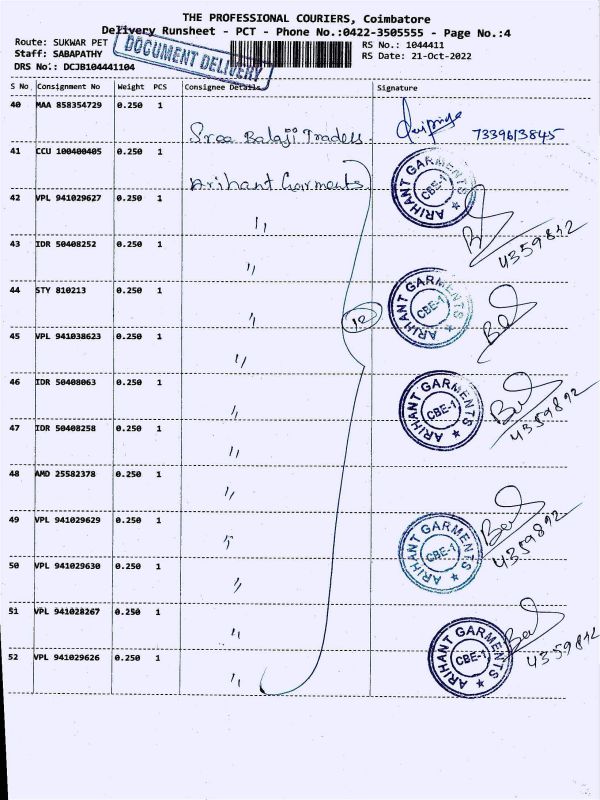 THE PROFESSIONAL COURIERS, Coimbatore
Delivery Runsheet - PCT - Phone No.:0422-3505555 - Page No.:4
Route: SUKWAR PET
RS No.: 1044411
Staff: SABAPATHY
RS Date: 21-Oct-2022
DRS No.: DCJB104441104
DOCUMENT DELIVERY
S No Consignment No Weight PCS Consignee Details Signature
40 MAA 858354729 0.250 1
Sree Balaji Traders 7339613845
41 CCU 100400405 0.250 1
Arihant Garments ARIHANT GARMENTS CBE-1
42 VPL 941029627 0.250 1 "
4359892
43 IDR 50408252 0.250 1 "
44 STY 810213 0.250 1 " 12 ARIHANT GARMENTS CBE-1
45 VPL 941038623 0.250 1 "
46 IDR 50408063 0.250 1 " ARIHANT GARMENTS CBE-1 4359892
47 IDR 50408258 0.250 1 "
48 AMD 25582378 0.250 1 "
49 VPL 941029629 0.250 1 " ARIHANT GARMENTS CBE-1 4359892
50 VPL 941029630 0.250 1 "
51 VPL 941028267 0.250 1 "
52 VPL 941029626 0.250 1 " ARIHANT GARMENTS CBE-1 4359892